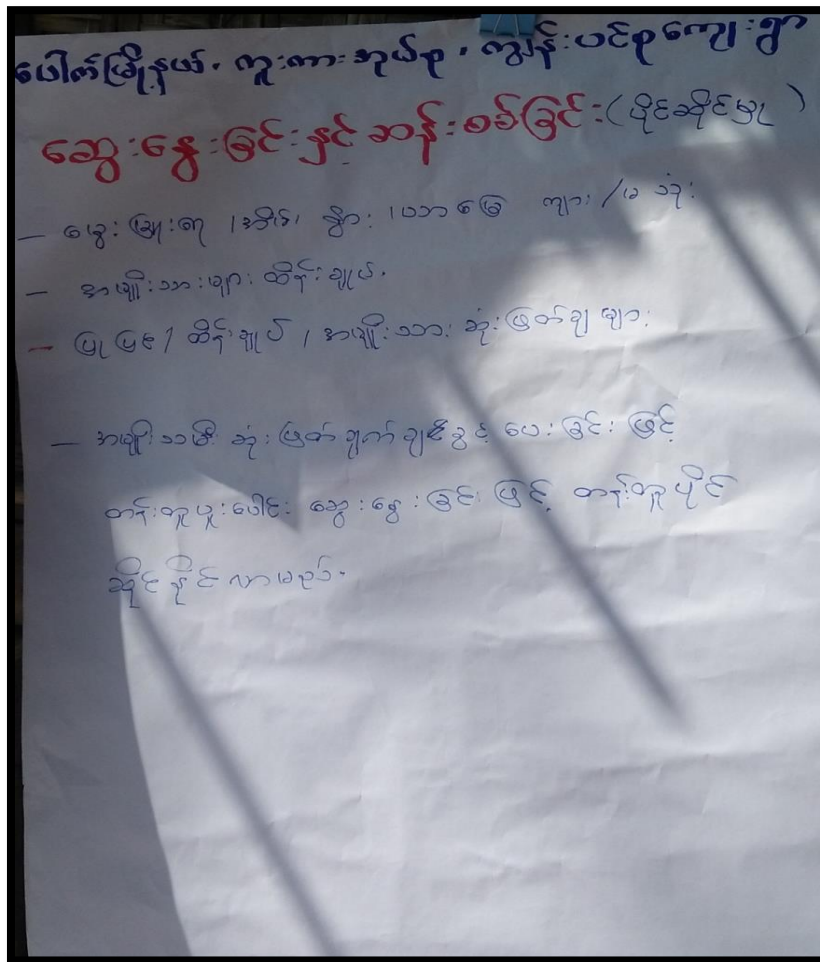 ပေါက်မြို့နယ်၊ ကူးကားအုပ်စု၊ ကျွန်းပင်စုကျေးရွာ
ဆွေးနွေးခြင်းနှင့် ဆန်းစစ်ခြင်း (ပိုင်ဆိုင်မှု)
- မွေးမြူးရေ /အိမ်၊ နွား၊ ယာမြေ ကျား/မ သုံး
- အမျိုးသားများ ထိန်းချုပ်၊
- ပြုပြင် / ထိန်းချုပ် / အမျိုးသား ဆုံးဖြတ်ချများ
- အမျိုးသမီး ဆုံးဖြတ်ချက်ချခွင့် ပေးခြင်းဖြင့်
တန်းတူပူးပေါင်း ဆွေးနွေးခြင်းဖြင့် တန်းတူပိုင်
ဆိုင်နိုင်လာမည်။